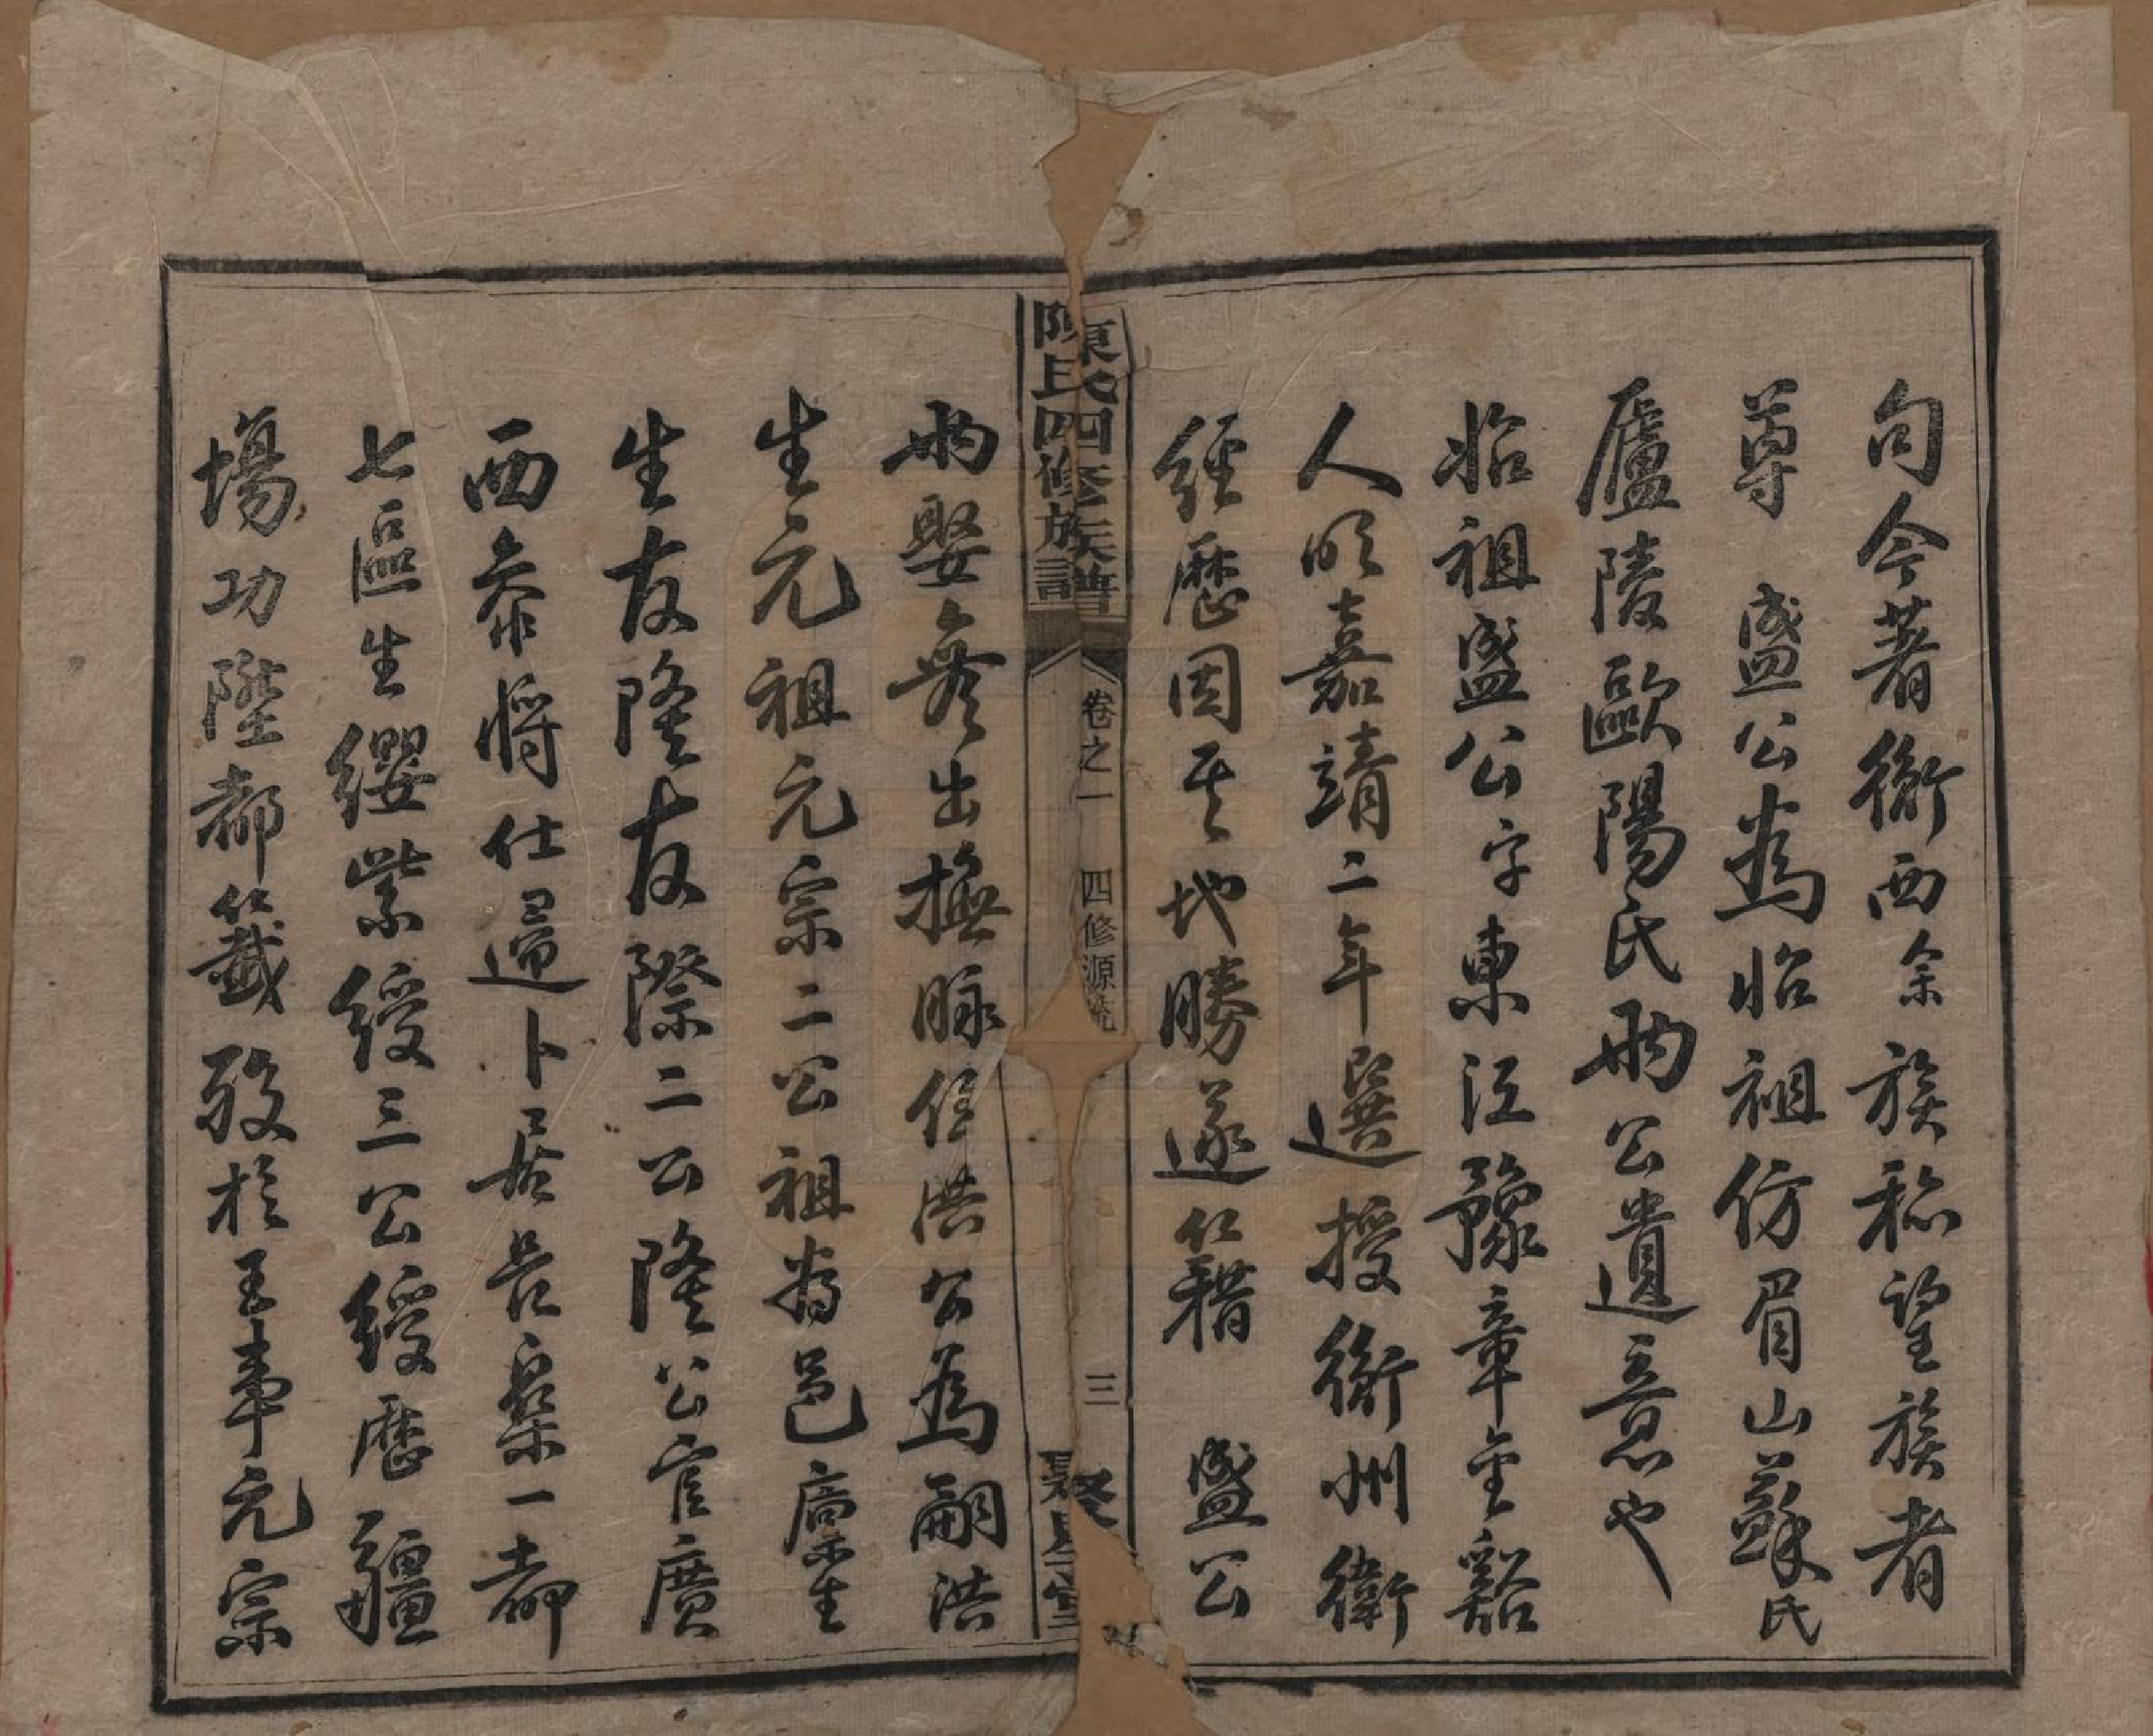 句今著衡西余族称望族者
尊　盛公為始祖仿眉山蘇氏
廬陵歐陽氏兩公遺意也
始祖盛公字東江豫章金谿
人明嘉靖二年選授衡州衛
經歷因其地勝遂籍　盛公
陳氏四修族譜　卷之一　四修源流　三　聚星堂
兩娶無出撫脉侄洪公為嗣洪
生元祖元宗二公祖為邑廩生
生友隆友際二公隆公官廣
西參將仕還卜居長樂一都
七區生纓紫綬三公綬歷疆
場功陞都籤歿於王事元宗